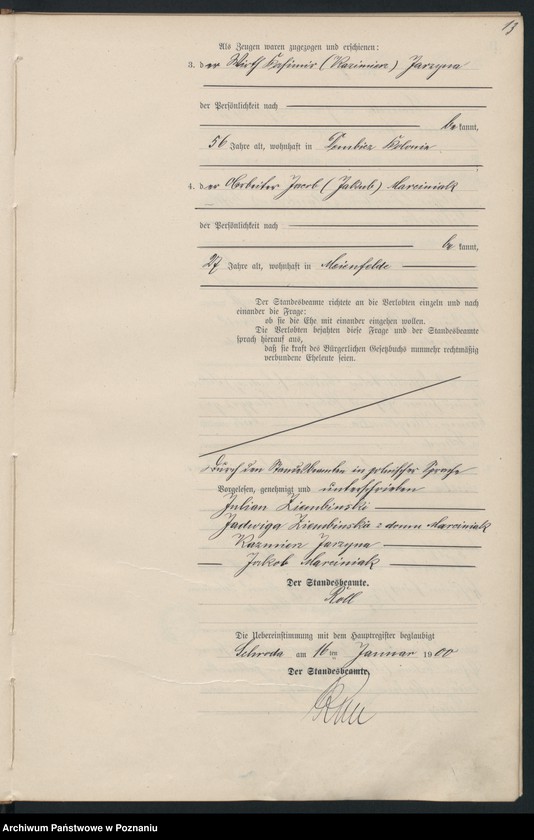 13
Als Zeugen waren zugezogen und erschienen:
3. der Wirth Kasimir (Kazimierz) Jarzyna
der Persönlichkeit nach
be kannt,
56 Jahre alt, wohnhaft in Dembicz Kolonie
4. der Arbeiter Jacob (Jakub) Marciniak
der Persönlichkeit nach
be kannt,
27 Jahre alt, wohnhaft in Maienfelde
Der Standesbeamte richtete an die Verlobten einzeln und nach
einander die Frage:
ob sie die Ehe mit einander eingehen wollen.
Die Verlobten bejahten diese Frage und der Standesbeamte
sprach hierauf aus,
daß sie kraft des Bürgerlichen Gesetzbuchs nunmehr rechtmäßig
verbundene Eheleute seien.
Durch den Standesbeamten in polnischer Sprache
Vorgelesen, genehmigt und unterschrieben
Julian Ziembinski
Jadwiga Ziembinska z domu Marciniak
Kazmierz Jarzyna
Jakob Marciniak
Der Standesbeamte.
Roll
Die Uebereinstimmung mit dem Hauptregister beglaubigt
Schroda am 16ten Januar 1900
Der Standesbeamte
Archiwum Państwowe w Poznaniu